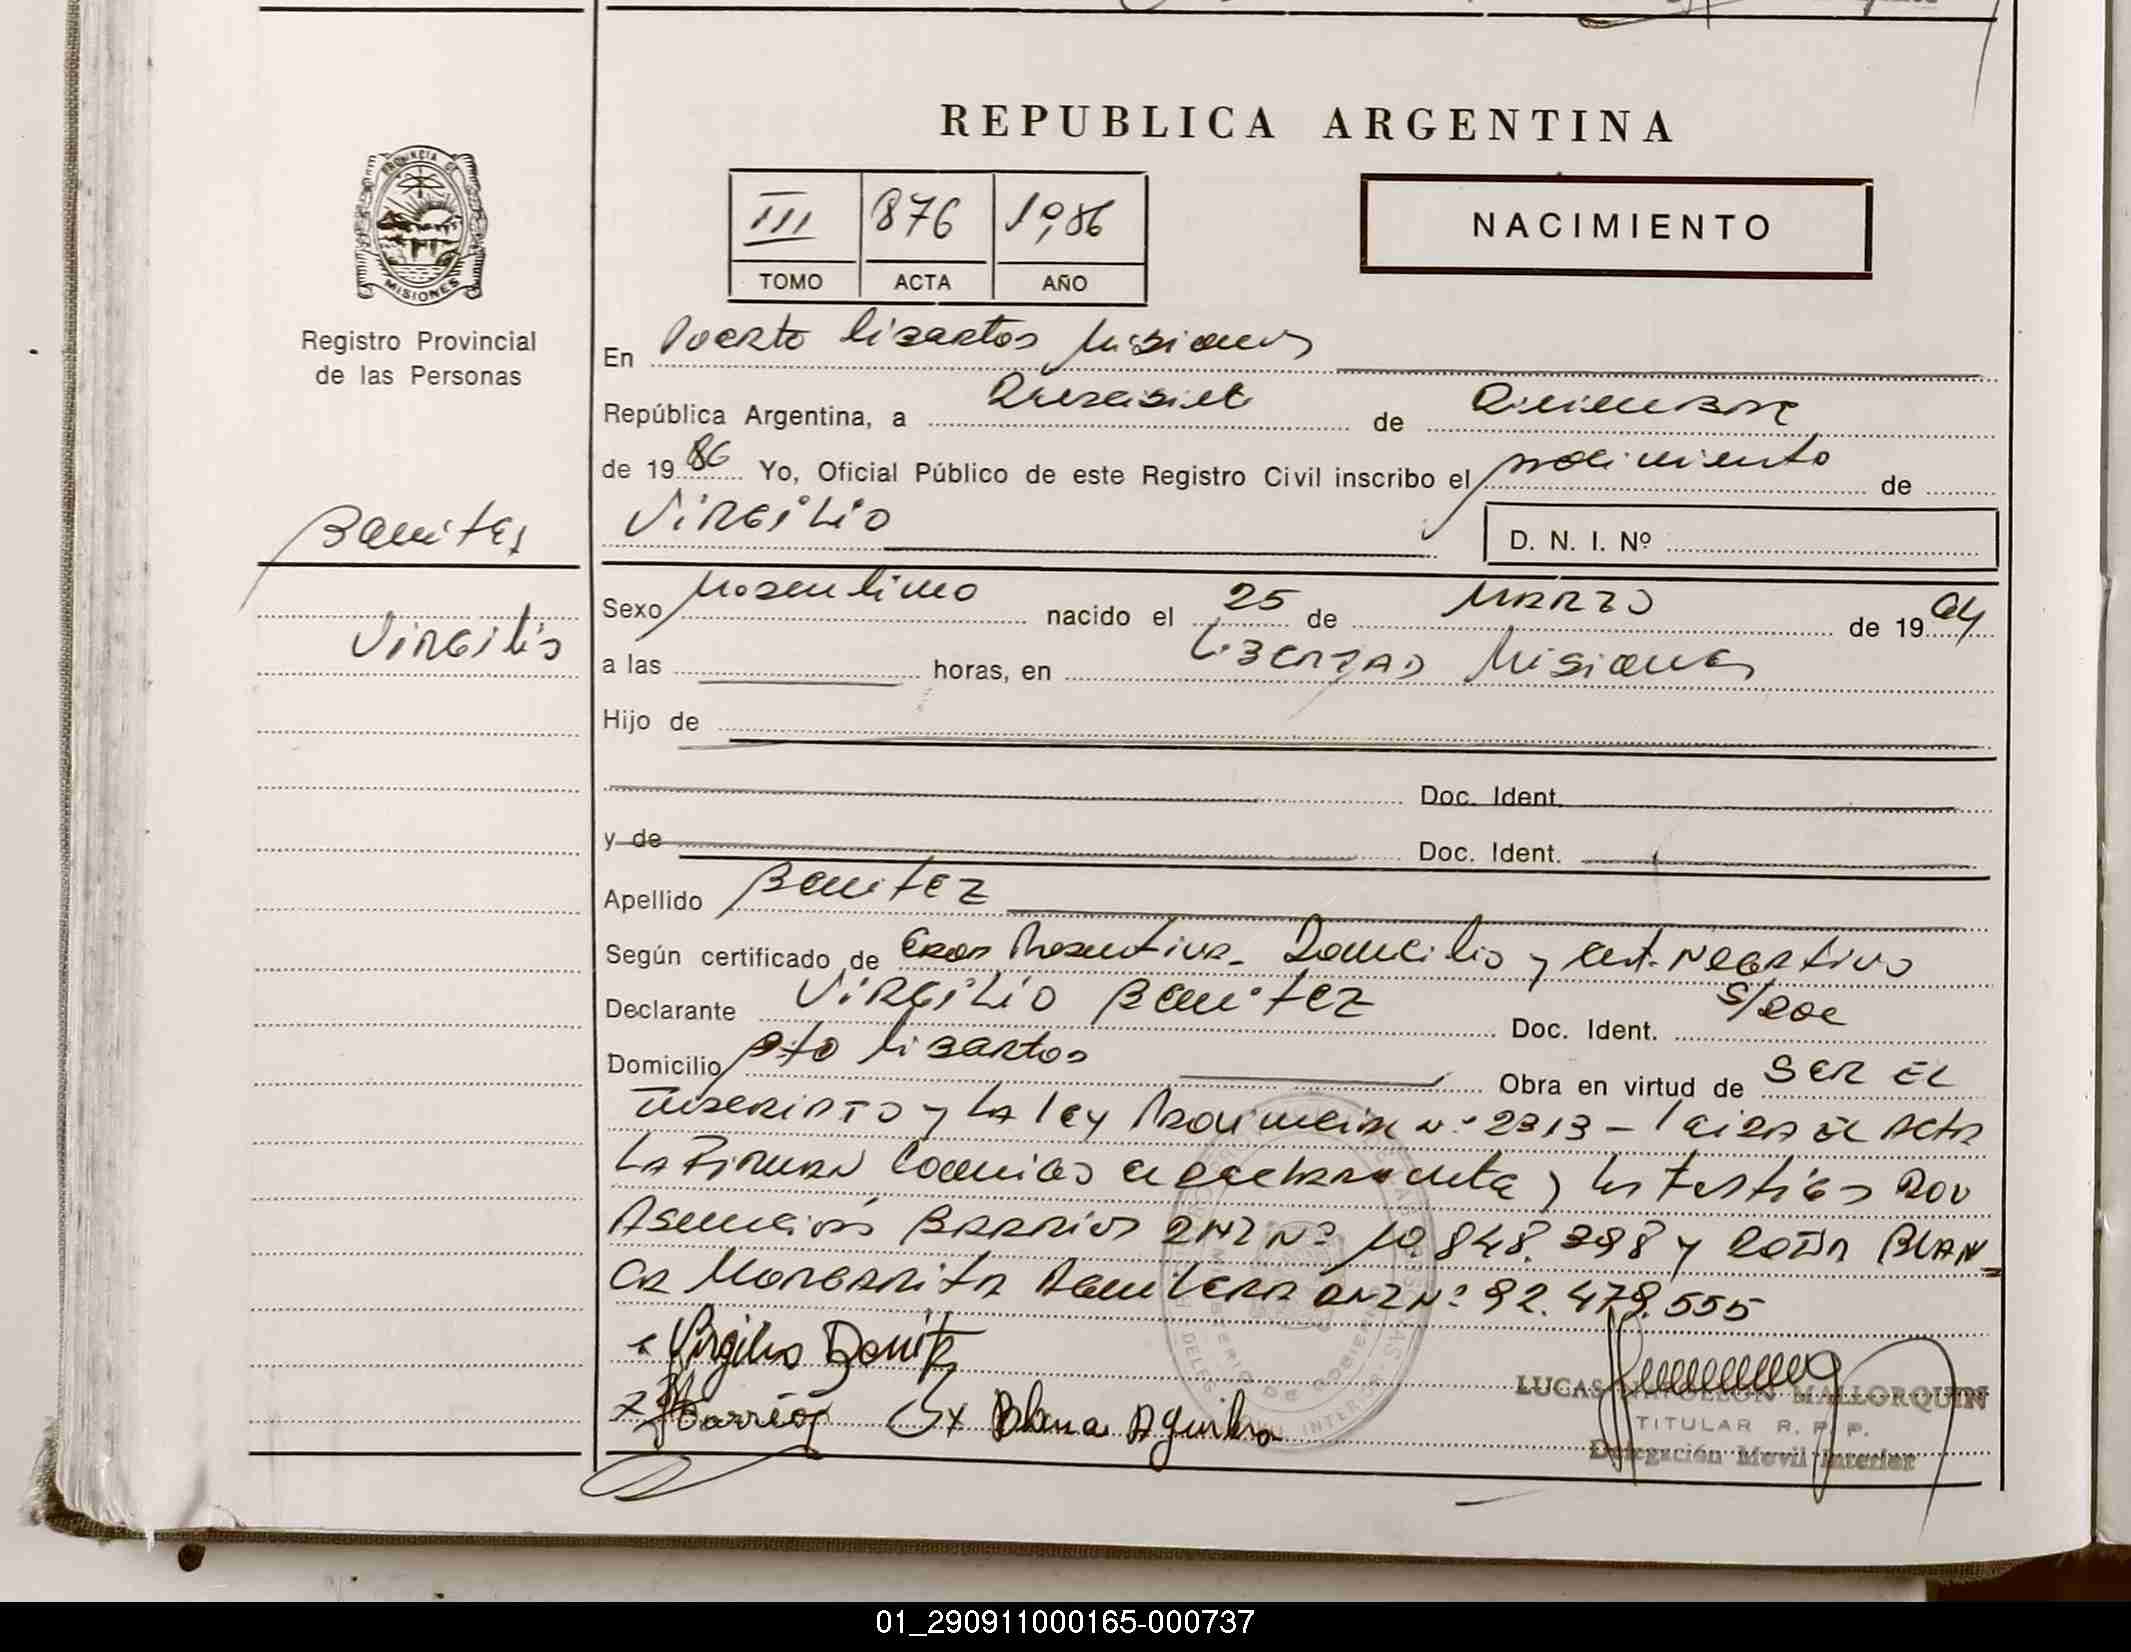 REPUBLICA ARGENTINA
PROVINCIA DE
MISIONES
Registro Provincial
de las Personas
III 876 1986
TOMO ACTA AÑO
NACIMIENTO
En Puerto Libertad Misiones
República Argentina, a de Diciembre
de 1986 Yo, Oficial Público de este Registro Civil inscribo el nacimiento de
Benitez
VIRGILIO
D. N. I. Nº
Virgilio
Sexo Masculino nacido el 25 de MARZO de 19
a las horas, en LIBERTAD Misiones
Hijo de
Doc. Ident.
y de Doc. Ident.
Apellido Benitez
Según certificado de Domicilio y Cert. Negativo
Declarante VIRGILIO Benitez Doc. Ident. S/Doc
Domicilio Pto Libertad Obra en virtud de SER EL
Inscripto y LA ley Provincial Nº 2313 - Leida EL Acta
LA FIRMAN Conmigo el declarante y los testigos Don
Asunción BARRIOS DNI Nº 10.848.398 y DOÑA BLAN-
CA MARGARITA Aguilera DNI Nº 92.479.555
x Virgilio Benitez
x Barrios x Blanca Aguilera
LUCAS NAPOLEON MALLORQUIN
TITULAR R. P. P.
Delegación Movil Interior
01_290911000165-000737